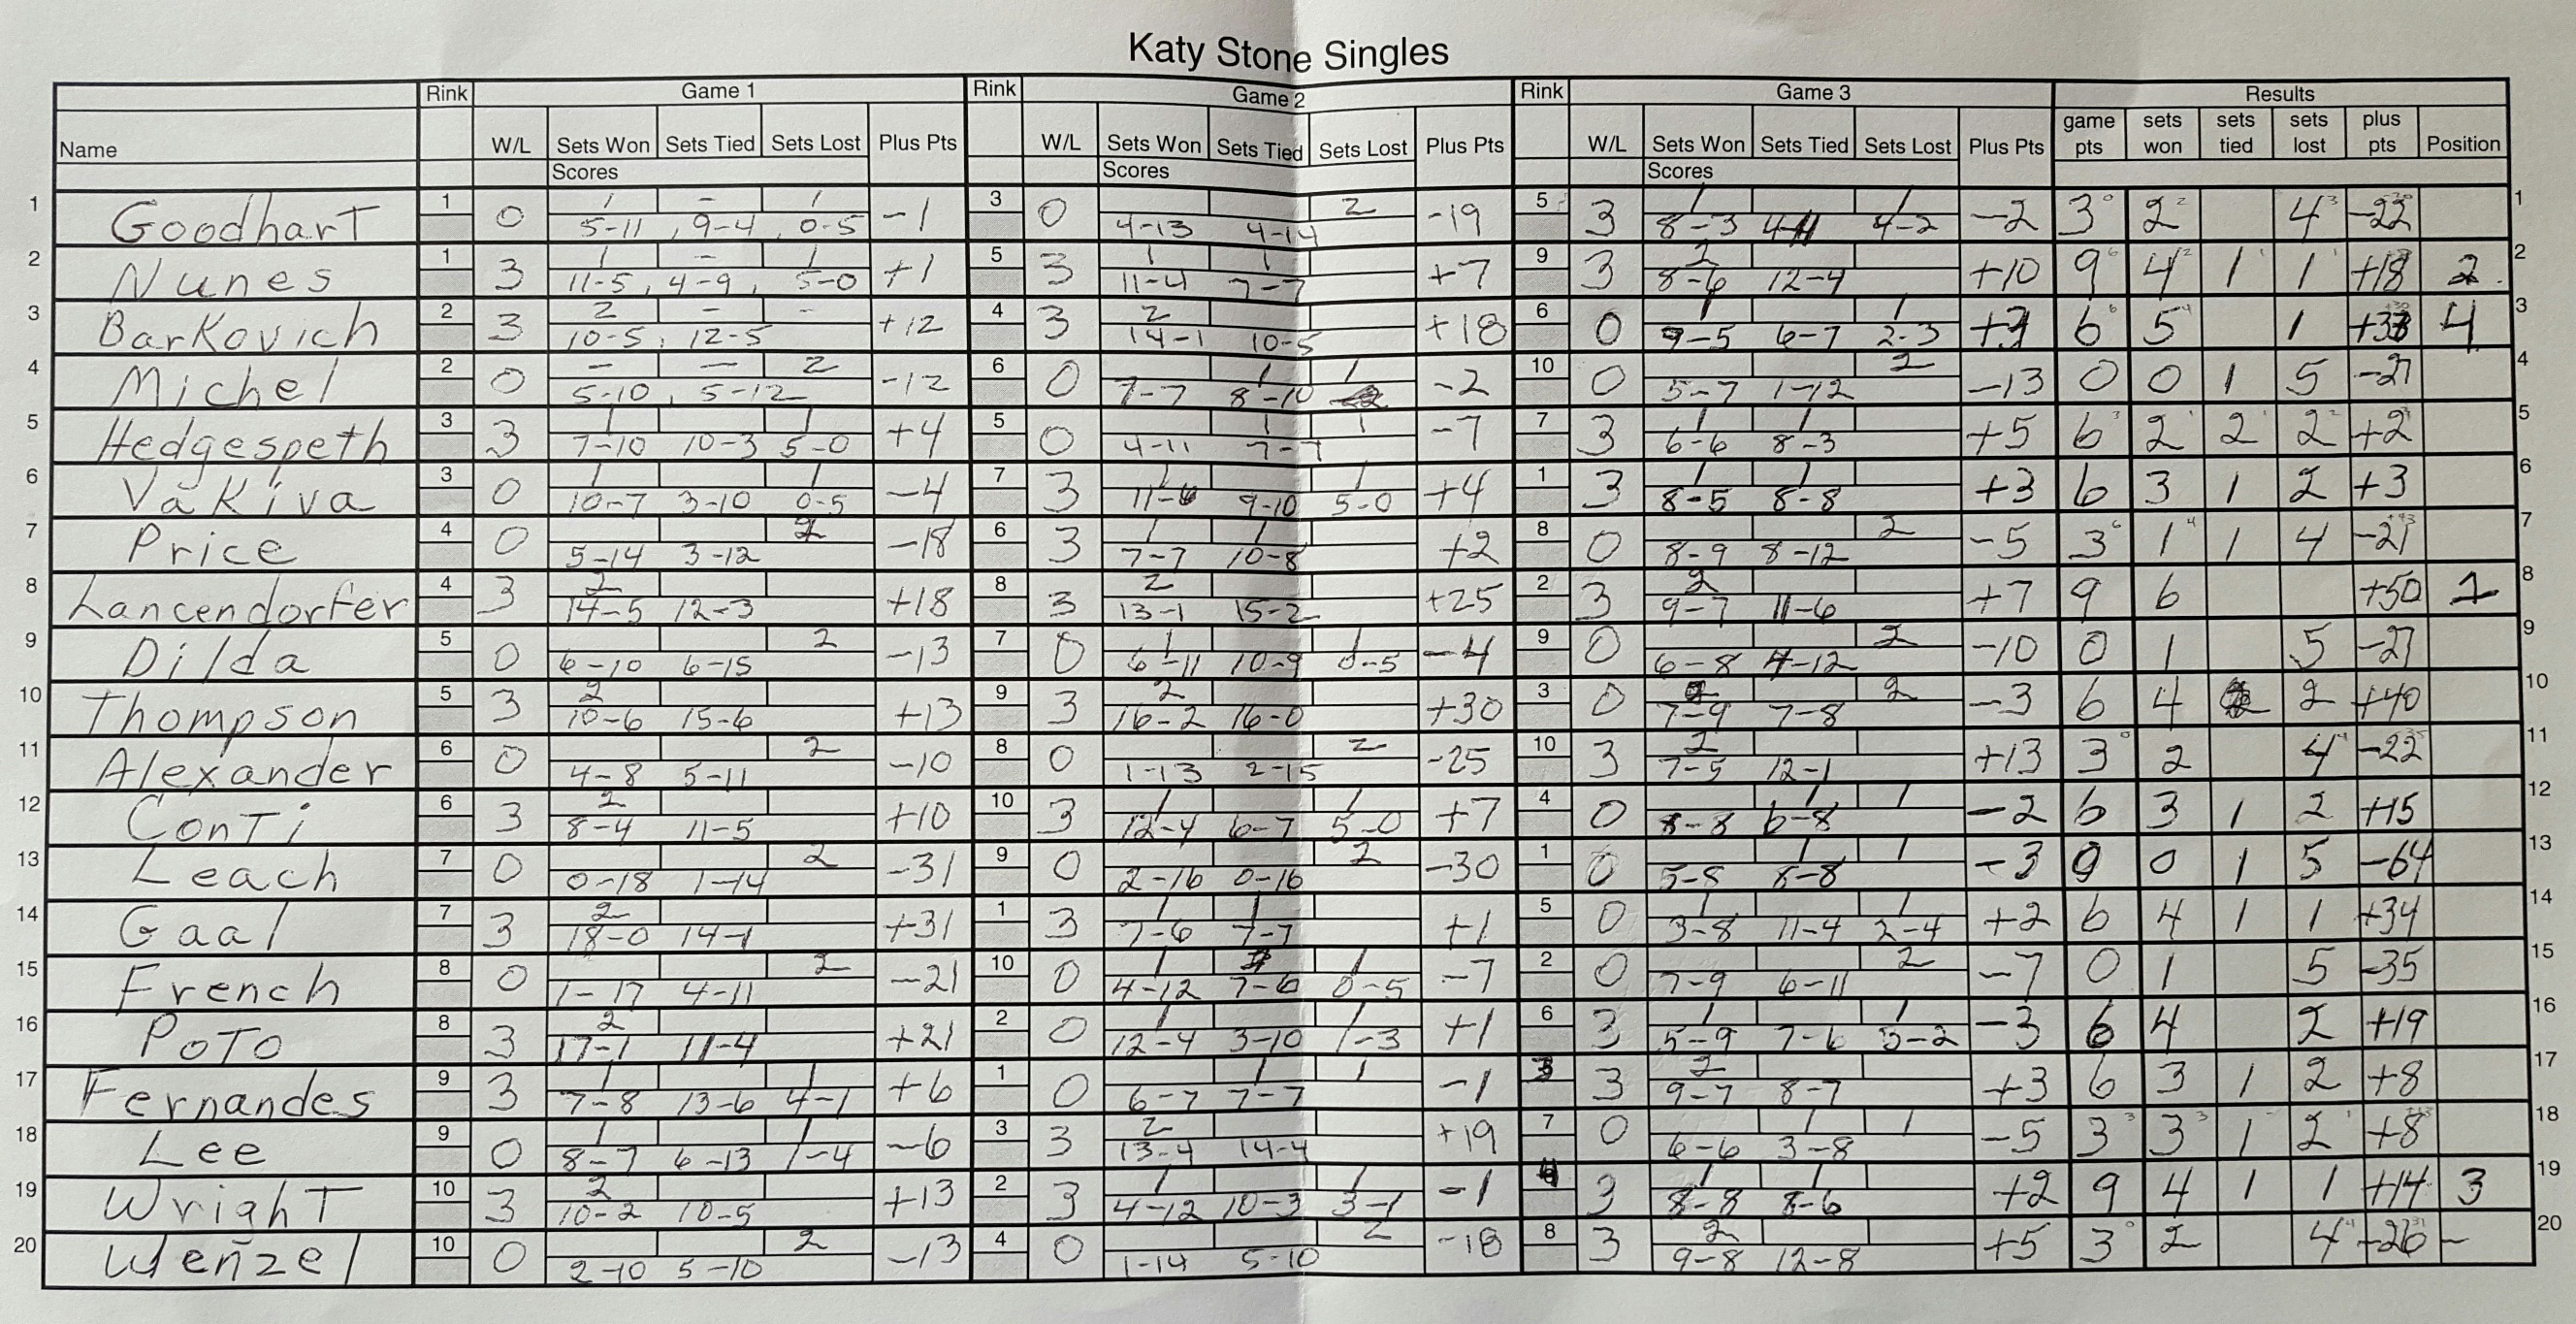 Katy Stone Singles
Rink Game 1 Rink Game 2 Rink Game 3 Results
Name W/L Sets Won Sets Tied Sets Lost Plus Pts W/L Sets Won Sets Tied Sets Lost Plus Pts W/L Sets Won Sets Tied Sets Lost Plus Pts game pts sets won sets tied sets lost plus pts Position
Scores Scores Scores
1 Goodhart 1 0 1 - 1 5-11, 9-4, 0-5 -1 3 0 2 4-13 4-14 -19 5 3 1 1 8-3 4-11 4-2 -2 3 2 4 -22 1
2 Nunes 1 3 1 - 1 11-5, 4-9, 5-0 +1 5 3 1 1 11-4 7-7 +7 9 3 2 8-6 12-4 +10 9 4 1 1 +18 2 2
3 Barkovich 2 3 2 - - 10-5, 12-5 +12 4 3 2 14-1 10-5 +18 6 0 1 1 9-5 6-7 2-3 6 5 1 4 3
4 Michel 2 0 - - 2 5-10, 5-12 -12 6 0 1 1 7-7 8-10 -2 10 0 2 5-7 1-12 -13 0 0 1 5 -27 4
5 Hedgespeth 3 3 1 7-10 10-3 5-0 +4 5 0 1 1 4-11 7-7 -7 7 3 1 1 6-6 8-3 +5 6 2 2 2 +2 5
6 Vakiva 3 0 1 1 10-7 3-10 0-5 -4 7 3 1 1 11-6 9-10 5-0 +4 1 3 1 1 8-5 8-8 +3 6 3 1 2 +3 6
7 Price 4 0 2 5-14 3-12 -18 6 3 1 1 7-7 10-8 +2 8 0 2 8-9 8-12 -5 3 1 1 4 -21 7
8 Lancendorfer 4 3 2 14-5 12-3 +18 8 3 2 13-1 15-2 +25 2 3 2 9-7 11-6 +7 9 6 +50 1 8
9 Dilda 5 0 2 6-10 6-15 -13 7 0 1 1 6-11 10-9 0-5 -4 9 0 2 6-8 4-12 -10 0 1 5 -27 9
10 Thompson 5 3 2 10-6 15-6 +13 9 3 2 16-2 16-0 +30 3 0 2 7-9 7-8 -3 6 4 2 +40 10
11 Alexander 6 0 2 4-8 5-11 -10 8 0 2 1-13 2-15 -25 10 3 2 7-5 12-1 +13 3 2 4 -22 11
12 Conti 6 3 2 8-4 11-5 +10 10 3 1 1 12-4 6-7 5-0 +7 4 0 1 1 8-8 6-8 -2 6 3 1 2 +15 12
13 Leach 7 0 2 0-18 1-14 -31 9 0 2 2-16 0-16 -30 1 0 1 1 5-8 8-8 -3 0 0 1 5 -64 13
14 Gaal 7 3 2 18-0 14-1 +31 1 3 1 1 7-6 7-7 +1 5 0 1 1 3-8 11-4 2-4 +2 6 4 1 1 +34 14
15 French 8 0 2 1-17 4-11 -21 10 0 1 1 4-12 7-6 0-5 -7 2 0 2 7-9 6-11 -7 0 1 5 -35 15
16 Poto 8 3 2 17-1 11-4 +21 2 0 1 1 12-4 3-10 1-3 +1 6 3 1 1 5-9 7-6 3-2 -3 6 4 2 +19 16
17 Fernandes 9 3 1 1 7-8 13-6 4-1 +6 1 0 1 1 6-7 7-7 -1 3 3 2 9-7 8-7 +3 6 3 1 2 +8 17
18 Lee 9 0 1 1 8-7 6-13 1-4 -6 3 3 2 13-4 14-4 +19 7 0 1 1 6-6 3-8 -5 3 3 1 2 +8 18
19 Wright 10 3 2 10-2 10-5 +13 2 3 1 1 4-12 10-3 3-1 -1 4 3 1 1 8-8 8-6 +2 9 4 1 1 +14 3 19
20 Wenzel 10 0 2 2-10 5-10 -13 4 0 2 1-14 5-10 -18 8 3 2 9-8 12-8 +5 3 2 4 -26 - 20